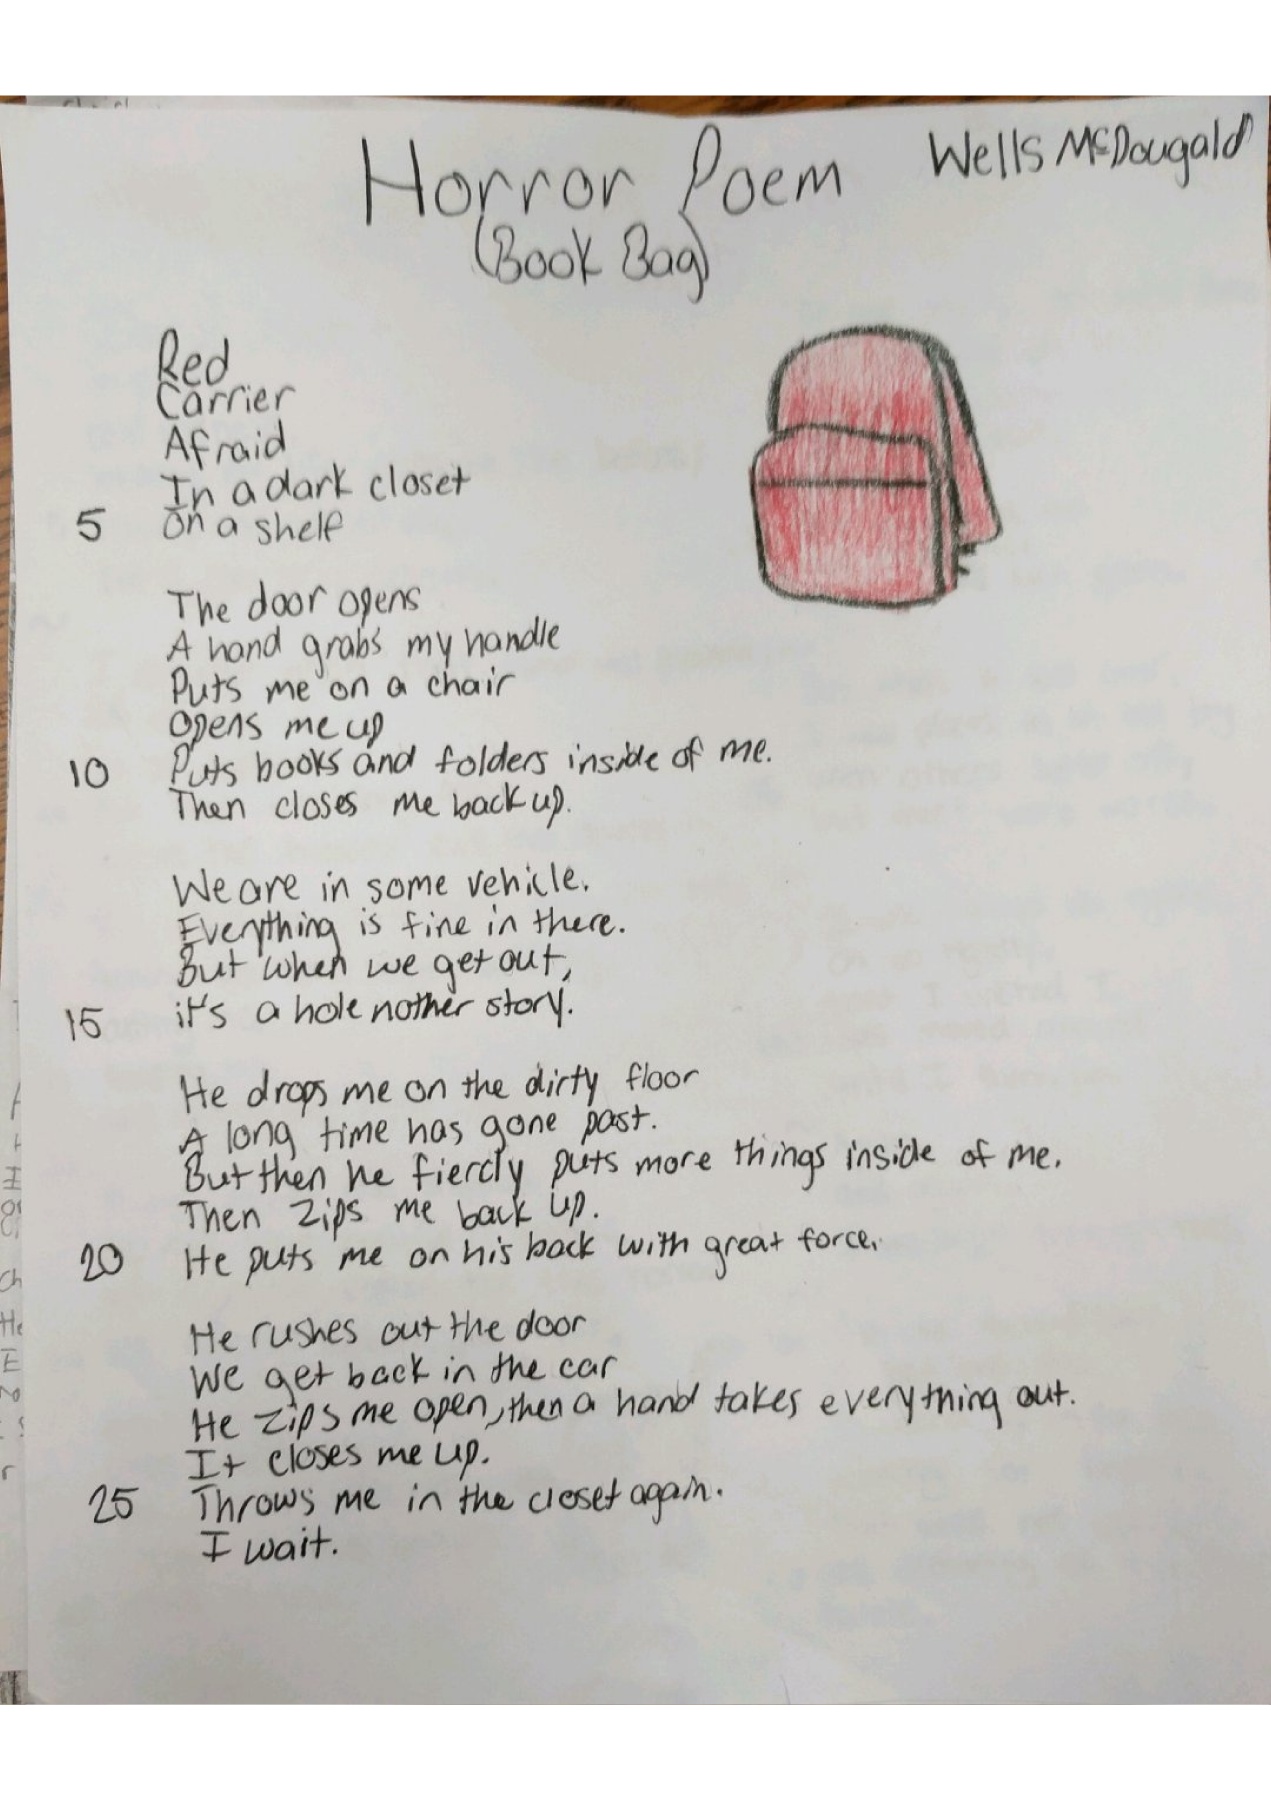 Horror Poem
Wells McDougald
(Book Bag)
Red
Carrier
Afraid
In a dark closet
5 On a shelf
The door opens
A hand grabs my handle
Puts me on a chair
Opens me up
10 Puts books and folders inside of me.
Then closes me back up.
We are in some vehicle.
Everything is fine in there.
But when we get out,
15 it's a hole nother story.
He drops me on the dirty floor
A long time has gone past.
But then he fiercly puts more things inside of me.
Then zips me back up.
20 He puts me on his back with great force.
He rushes out the door
We get back in the car
He zips me open, then a hand takes everything out.
It closes me up.
25 Throws me in the closet again.
I wait.